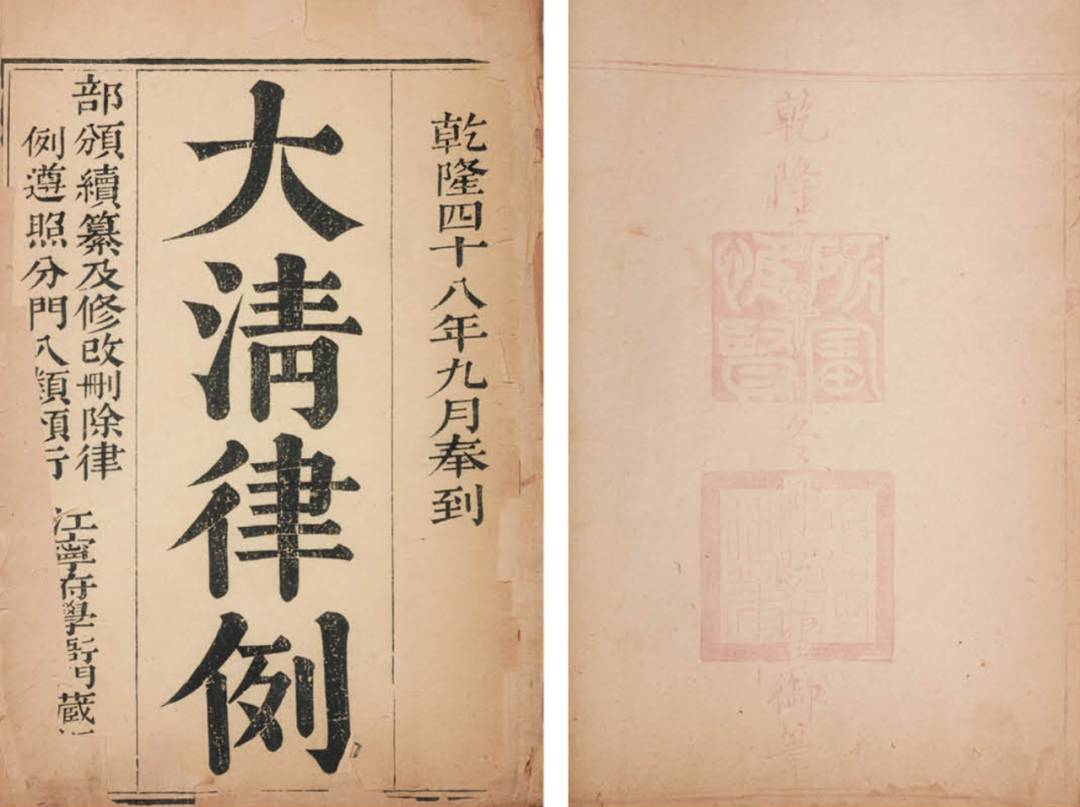 乾隆四十八年九月奉到
大清律例
部頒續纂及修改刪除律
例遵照分門入類頒行
江寧府學
藏
乾隆
御筆